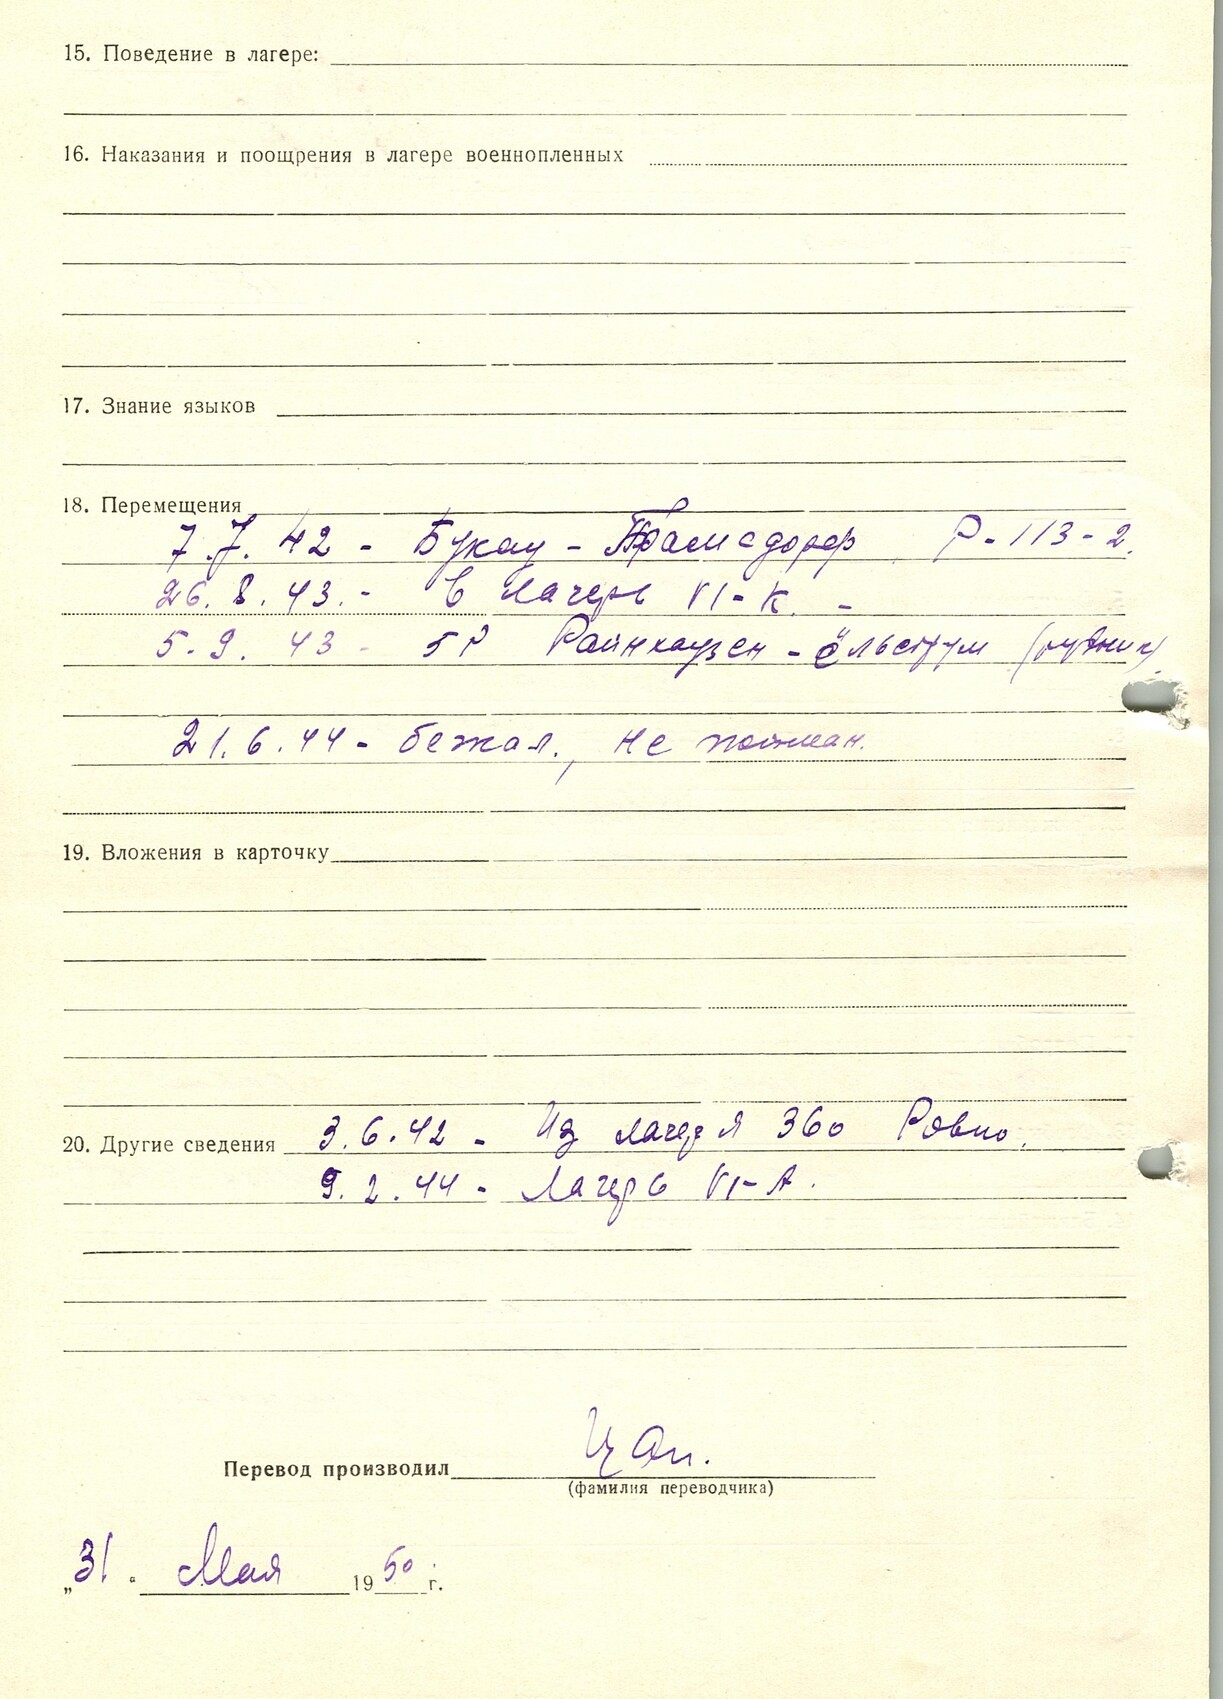 15. Поведение в лагере:
16. Наказания и поощрения в лагере военнопленных
17. Знание языков
18. Перемещения
7.7.42 - Букау - Р-113-2.
26.8.43. - в лагерь VI-К. -
5.9.43 - 5Р Райнхаузен - Ёльструм (рудник)
21.6.44 - бежал, не пойман.
19. Вложения в карточку
20. Другие сведения 3.6.42 - Из лагеря 360 Ровно.
9.2.44 - Лагерь VI-А.
Перевод производил
(фамилия переводчика)
„31" Мая 1950 г.